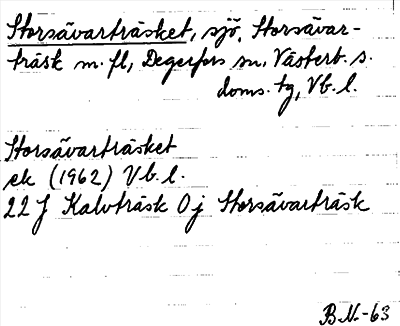 Storsävarträsket, sjö, Storsävar-
träsk m. fl, Degerfors sn, Västerb. s.
doms. tg, Vb. l.
Storsävarträsket
ek (1962) Vb. l.
22 J Kalvträsk 0 j Storsävarträsk
B.N.-63